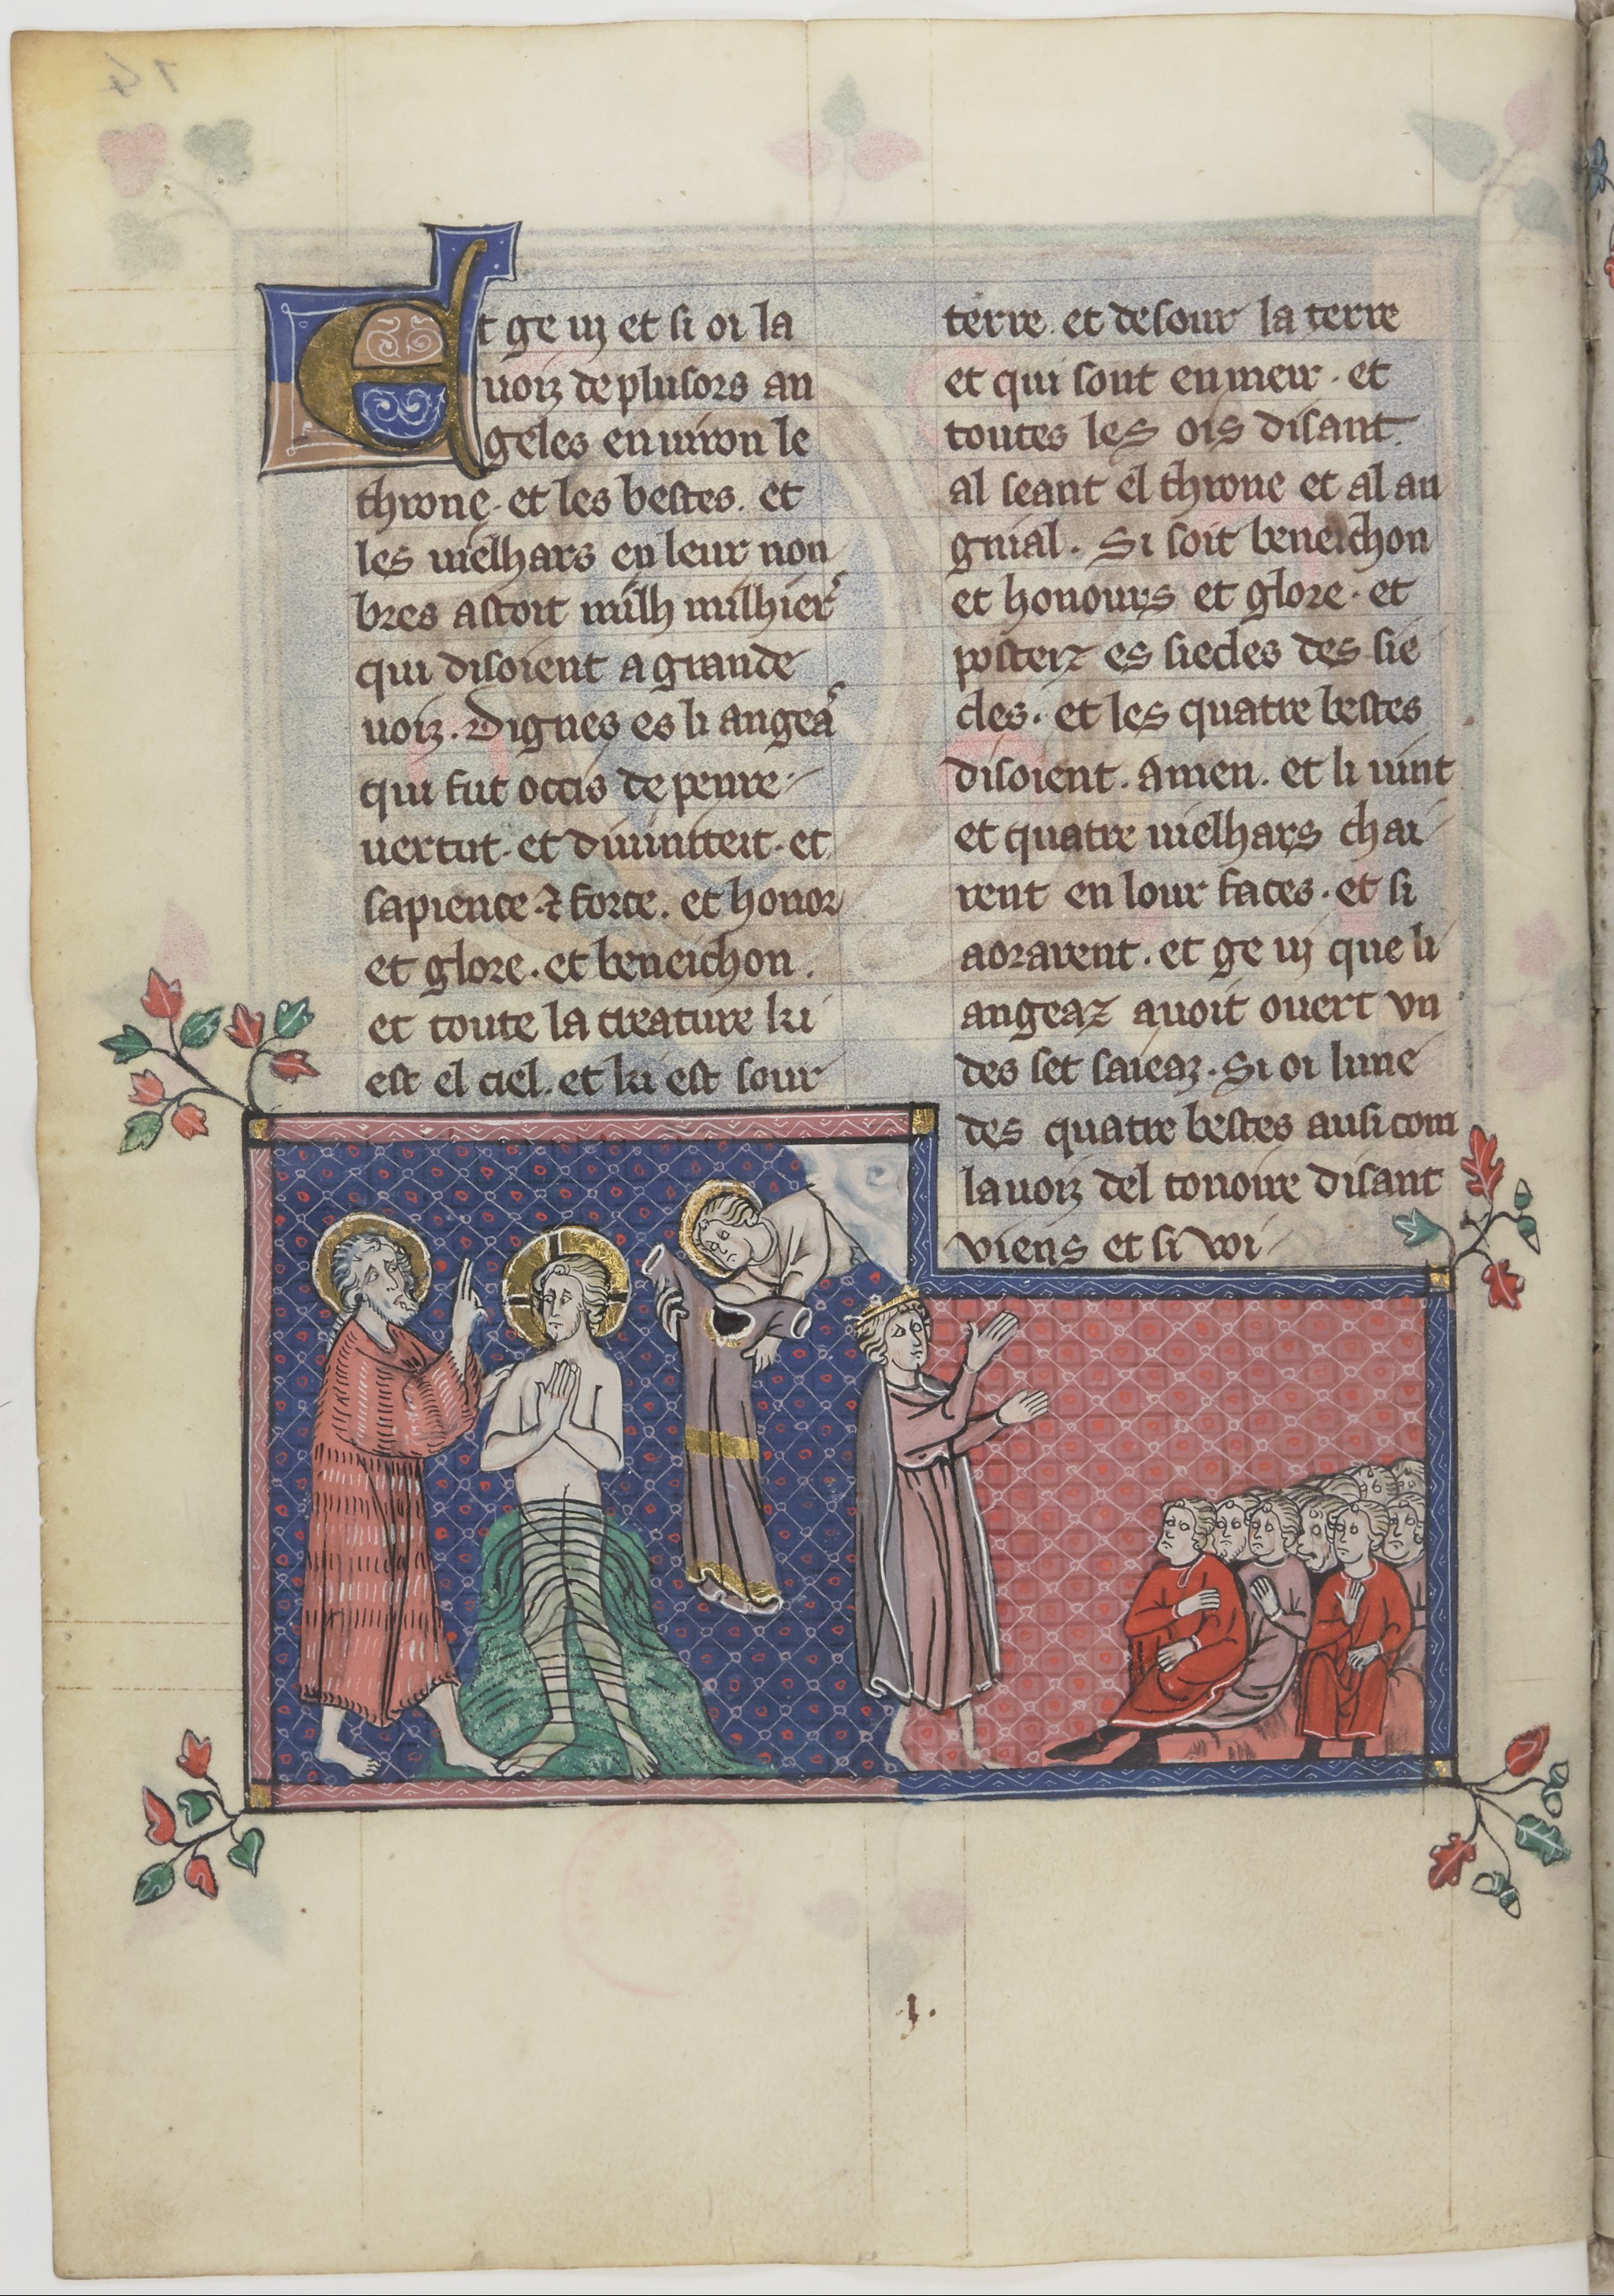 Et ge vy et si oi la
uoiz de plusors an
geles enuiron le
throne. et les bestes. et
les vielhars en leur non
bres astoit milh milhiers
qui disoient a grande
uoiz. Dignes es li angeaz
qui fut occis de penre
uertut. et diuiniteit. et
sapience ⁊ force. et honor
et glore. et beneichon.
et toute la creature ki
est el ciel. et ki est sour
terre. et desour la terre
et qui sont en meir. et
toutes les ois disant.
al seant el throne et al an
gnial. Si soit beneichon
et honours et glore. et
posteiz es siecles des sie
cles. et les quatre bestes
disoient. Amen. et li vint
et quatre vielhars chai
rent en lour faces. et si
aorarent. et ge vy que li
angeaz auoit ouert vn
des set saieaz. Si oi lune
des quatre bestes ausi com
la uoiz del tonoire disant
viens et si voi